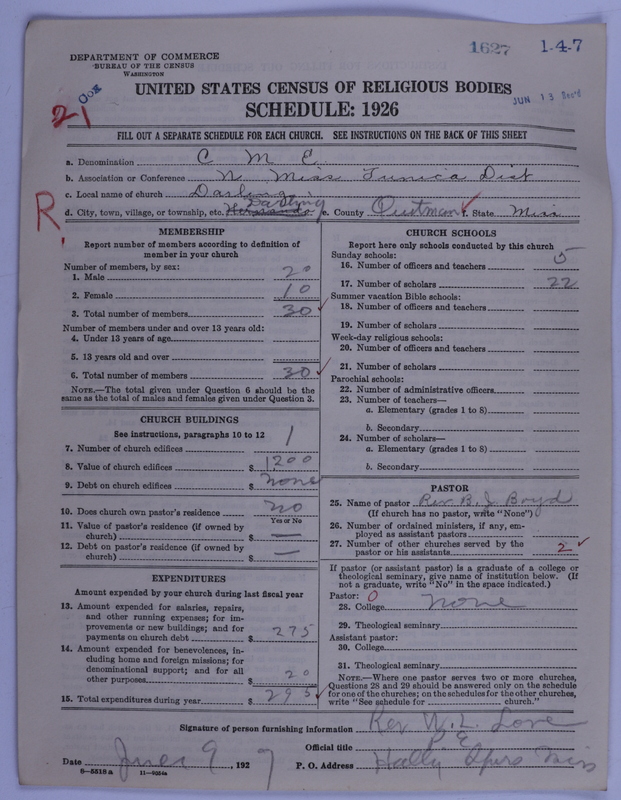 1627 1-4-7
DEPARTMENT OF COMMERCE
BUREAU OF THE CENSUS
WASHINGTON
UNITED STATES CENSUS OF RELIGIOUS BODIES
JUN 13 Rec'd
21
SCHEDULE: 1926
FILL OUT A SEPARATE SCHEDULE FOR EACH CHURCH. SEE INSTRUCTIONS ON THE BACK OF THIS SHEET
a. Denomination C M E
b. Association or Conference N. Miss Tunica Dist
c. Local name of church Darling
R.
d. City, town, village, or township, etc. Hernando Darling e. County Quitman f. State Miss
MEMBERSHIP
Report number of members according to definition of
member in your church
Number of members, by sex:
1. Male 20
2. Female 10
3. Total number of members 30
Number of members under and over 13 years old:
4. Under 13 years of age
5. 13 years old and over
6. Total number of members 30
NOTE.—The total given under Question 6 should be the
same as the total of males and females given under Question 3.
CHURCH BUILDINGS
See instructions, paragraphs 10 to 12
7. Number of church edifices 1
8. Value of church edifices $ 1200
9. Debt on church edifices $ none
10. Does church own pastor's residence? no
Yes or No
11. Value of pastor's residence (if owned by
church) $ —
12. Debt on pastor's residence (if owned by
church) $ —
EXPENDITURES
Amount expended by your church during last fiscal year
13. Amount expended for salaries, repairs,
and other running expenses; for im-
provements or new buildings; and for
payments on church debt $ 275
14. Amount expended for benevolences, in-
cluding home and foreign missions; for
denominational support; and for all
other purposes $ 20
15. Total expenditures during year $ 295
CHURCH SCHOOLS
Report here only schools conducted by this church
Sunday schools:
16. Number of officers and teachers 5
17. Number of scholars 22
Summer vacation Bible schools:
18. Number of officers and teachers
19. Number of scholars
Week-day religious schools:
20. Number of officers and teachers
21. Number of scholars
Parochial schools:
22. Number of administrative officers
23. Number of teachers—
a. Elementary (grades 1 to 8)
b. Secondary
24. Number of scholars—
a. Elementary (grades 1 to 8)
b. Secondary
PASTOR
25. Name of pastor Rev. B. J. Boyd
(If church has no pastor, write "None")
26. Number of ordained ministers, if any, em-
ployed as assistant pastors
27. Number of other churches served by the
pastor or his assistants 2
If pastor (or assistant pastor) is a graduate of a college or
theological seminary, give name of institution below. (If
not a graduate, write "No" in the space indicated.)
Pastor: 0
28. College none
29. Theological seminary
Assistant pastor:
30. College
31. Theological seminary
NOTE.—Where one pastor serves two or more churches,
Questions 28 and 29 should be answered only on the schedule
for one of the churches; on the schedules for the other churches,
write "See schedule for church."
Signature of person furnishing information Rev W. L. Love
Official title P. E.
Date June 9, 1927 P. O. Address Holly Spurs Miss
8-5518 a 11-9054a